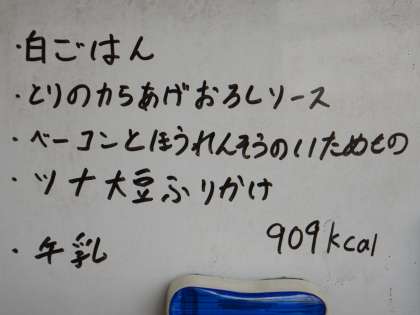 ・白ごはん
・とりのからあげおろしソース
・ベーコンとほうれんそうのいためもの
・ツナ大豆ふりかけ
・牛乳
909kcal